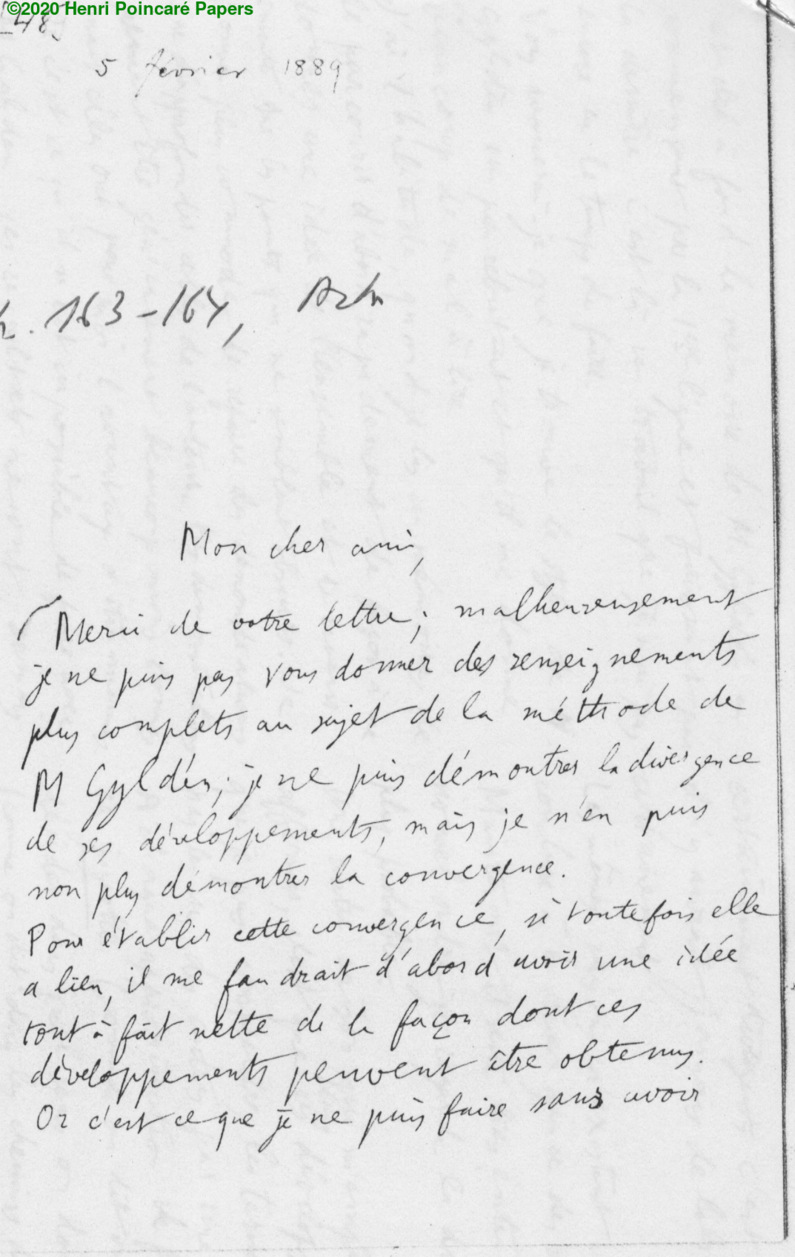 ©2020 Henri Poincaré Papers
48.
5 février 1889
163-164,
Mon cher ami,
Merci de votre lettre; malheureusement
je ne puis pas vous donner des renseignements
plus complets au sujet de la méthode de
M Gyldén; je ne puis démontrer la divergence
de ses développements, mais je n'en puis
non plus démontrer la convergence.
Pour établir cette convergence, si toutefois elle
a lieu, il me faudrait d'abord avoir une idée
tout à fait nette de la façon dont ces
développements peuvent être obtenus.
Or c'est ce que je ne puis faire sans avoir